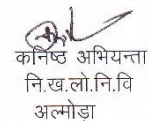 कनिष्ठ अभियन्ता
नि.ख.लो.नि.वि
अल्मोड़ा